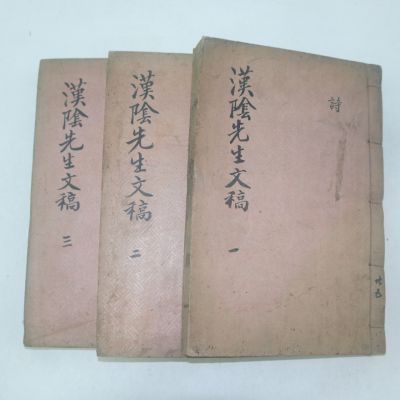 漢陰先生文稿 三
漢陰先生文稿 二
漢陰先生文稿 一
詩